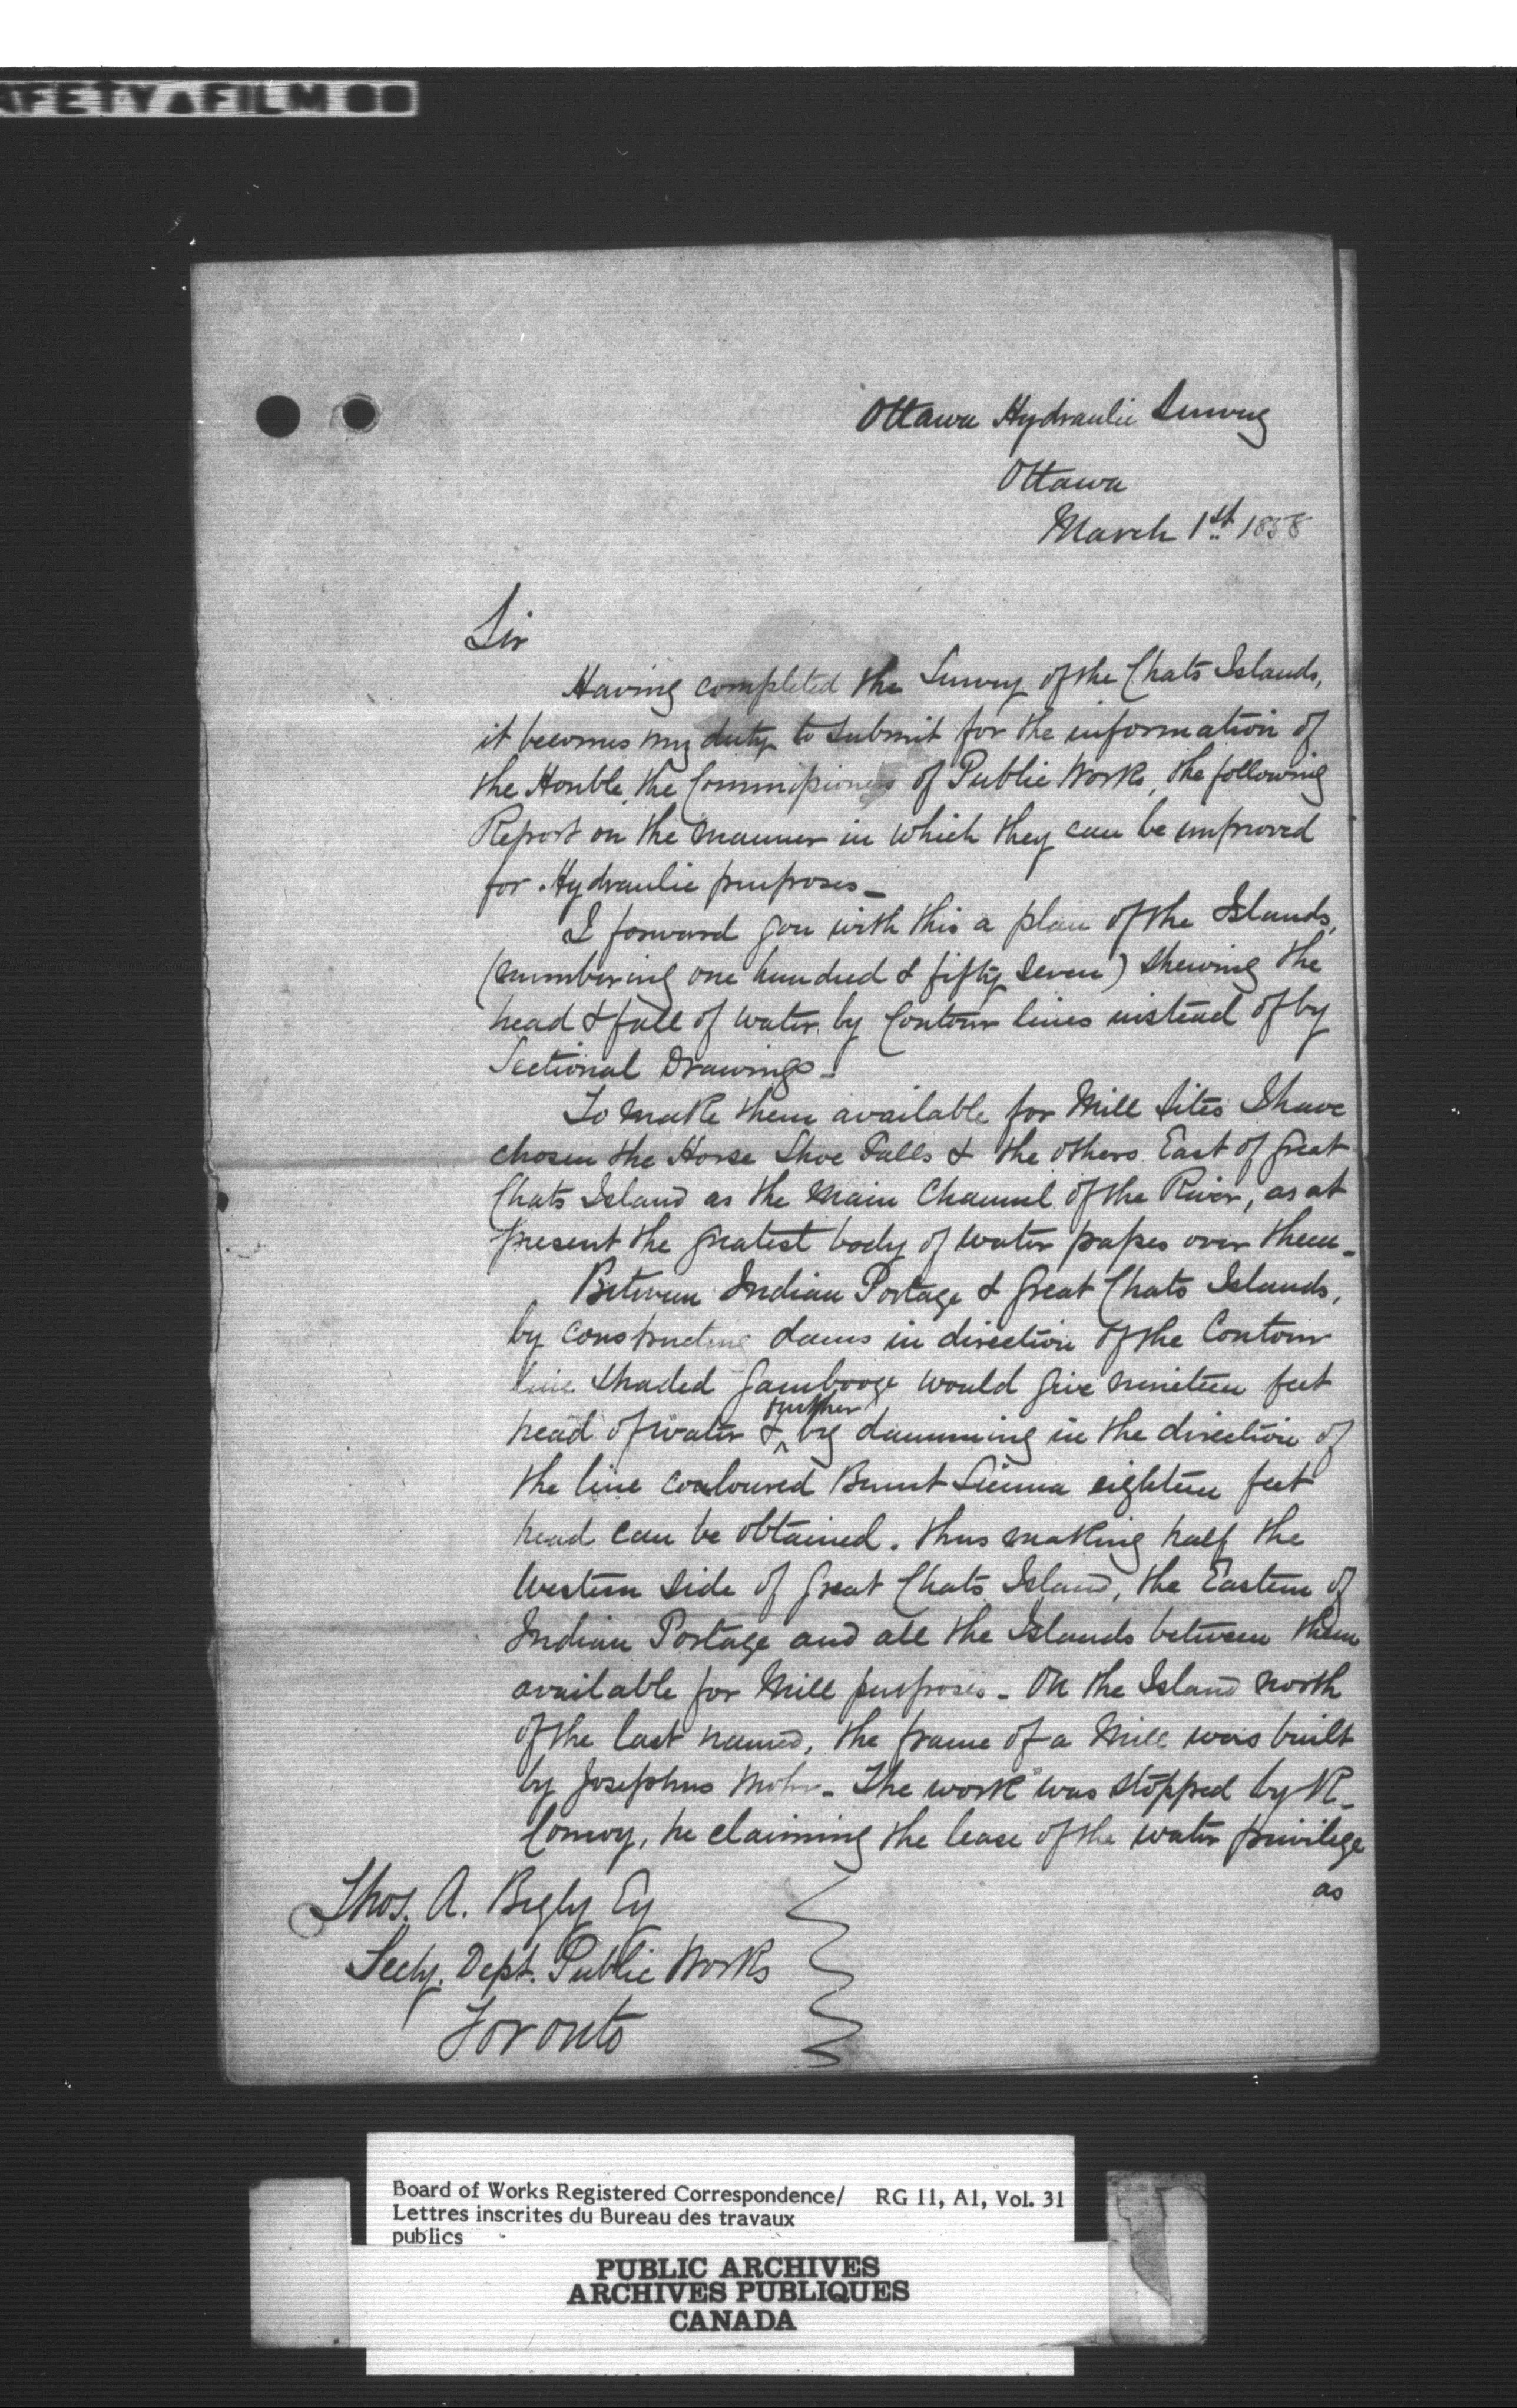 SAFETY▲FILM ●●
Ottawa Hydraulic Survey
Ottawa
March 1st 1858
Sir
Having completed the Survey of the Chats Islands,
it becomes my duty to submit for the information of
the Honble. the Commissioners of Public Works, the following
Report on the manner in which they can be improved
for Hydraulic purposes_
I forward you with this a plan of the Islands,
(numbering one hundred & fifty seven) shewing the
head & fall of water by Contour lines instead of by
Sectional Drawings_
To make them available for Mill Sites I have
chosen the Horse Shoe Falls & the others East of Great
Chats Island as the Main Channel of the River, as at
present the greatest body of water passes over them_
Between Indian Portage & Great Chats Islands,
by constructing dams in direction of the Contour
line shaded Gambooge would give nineteen feet
head of water & further by damming in the direction of
the line couloured Burnt Sienna eighteen feet
head can be obtained. thus making half the
Western side of Great Chats Island, the Eastern of
Indian Portage and all the Islands between them
available for Mill purposes_ On the Island north
of the last named, the frame of a Mill was built
by Josephus Mohr_ The work was stopped by
Conroy, he claiming the lease of the water privilege
as
Thos. A. Begly Esq
Secty. Dept. Public Works
Toronto
Board of Works Registered Correspondence/ RG 11, A1, Vol. 31
Lettres inscrites du Bureau des travaux
publics
PUBLIC ARCHIVES
ARCHIVES PUBLIQUES
CANADA